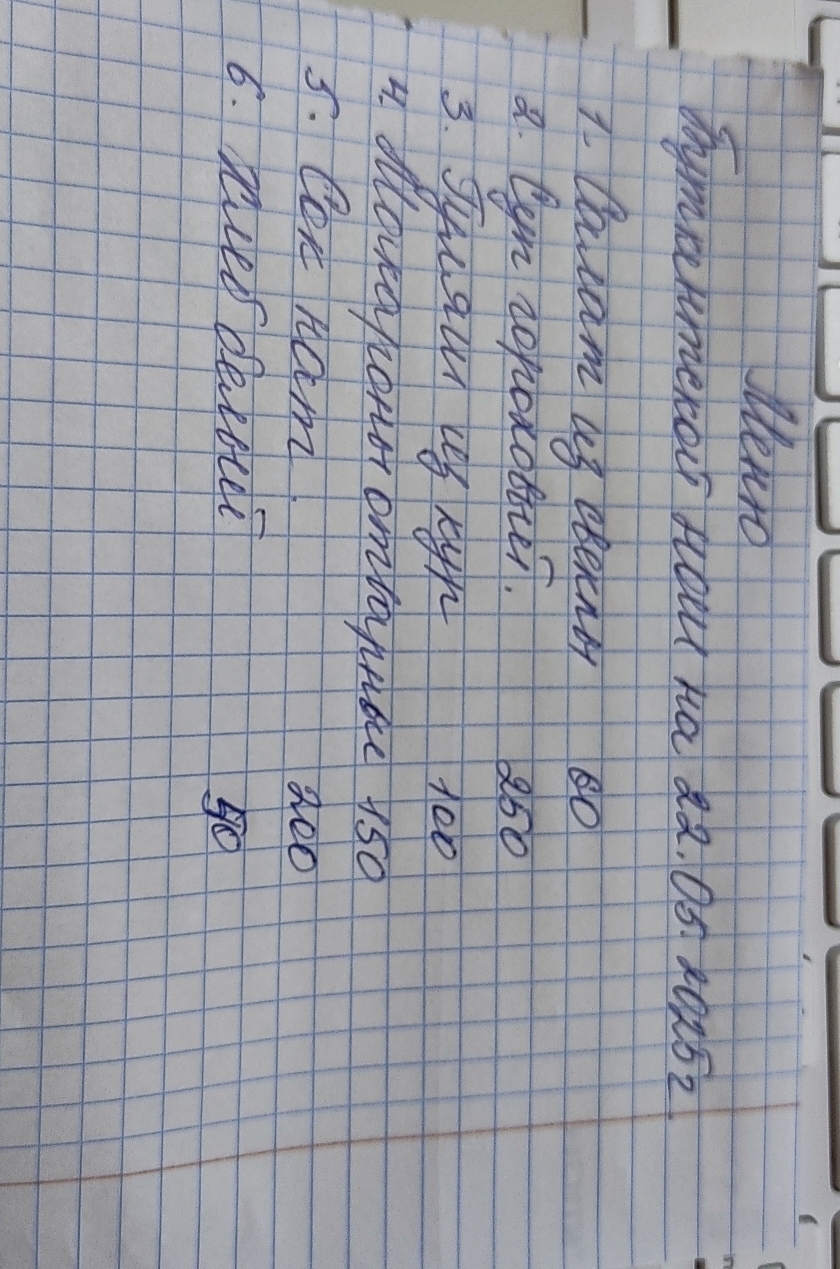 Меню
Буткентской нош на 22.05.2025г
1. Салат из свеклы 60
2. Суп гороховый. 250
3. Гуляш из кур 100
4. Макароны отварные 150
5. Сок нат. 200
6. Хлеб белый 50